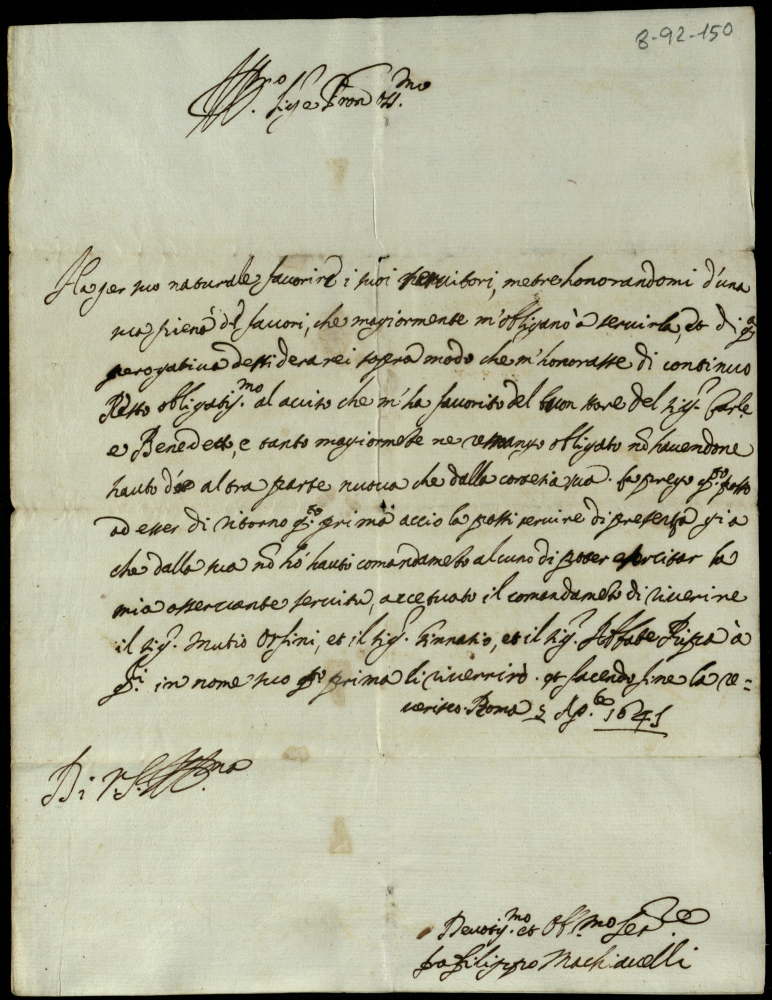 8-92-150
Ill.ro Sig.e Pron oss.mo
Ha per suo naturale favorire i suoi servitori, metre honorandomi d'una
sua piena di favori, che magiormente m'obligano à servirla, et di
perogativa dessiderarei sopra modo che m'honorasse di continuo
Resto obligatis.mo al aviso che m'ha favorito del buon stare del sig.r Carlo
e Benedetto, e tanto magiormete ne rimango obligato nō havendone
hauto da altra parte nuova che dalla cortesia sua. fo prego
ad esser di ritorno prima accio la possi servire di presenza gia
che dalla sua nō hò hauto comandameto alcuno di poter esercitar la
mia osservante servitu, accetuato il comandameto di riverire
il sig.r Mutio Orsini, et il sig.r Ennatio, et il sig.r Abbate à
in nome suo prima li riverrirò. et facendo fine la re=
verisco. Roma 5 1641
Di V.S. Ill.ma
Devotis.mo et Obl.mo Ser.e
fra Filippo Machiavelli